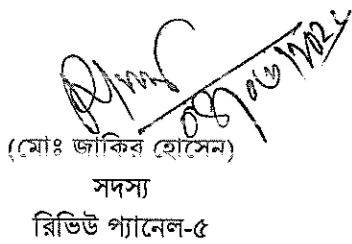 (মোঃ জাকির হোসেন)
সদস্য
রিভিউ প্যানেল-৫